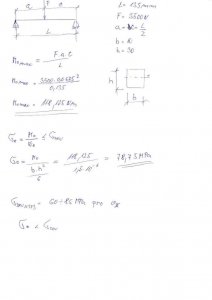 a F a
L
L = 135 mm
F = 3500 N
a = L/2
b = 10
h = 30
Mo max = F·a·t / L
Mo max = 3500·0,0675² / 0,135
Mo max = 118,125 Nm
h
b
σo = Mo / Wo ≤ σDOV
σo = Mo / (b·h²/6) = 118,125 / 1,5·10⁻⁶ = 78,75 MPa
60÷85 MPa pro
σo < σDOV